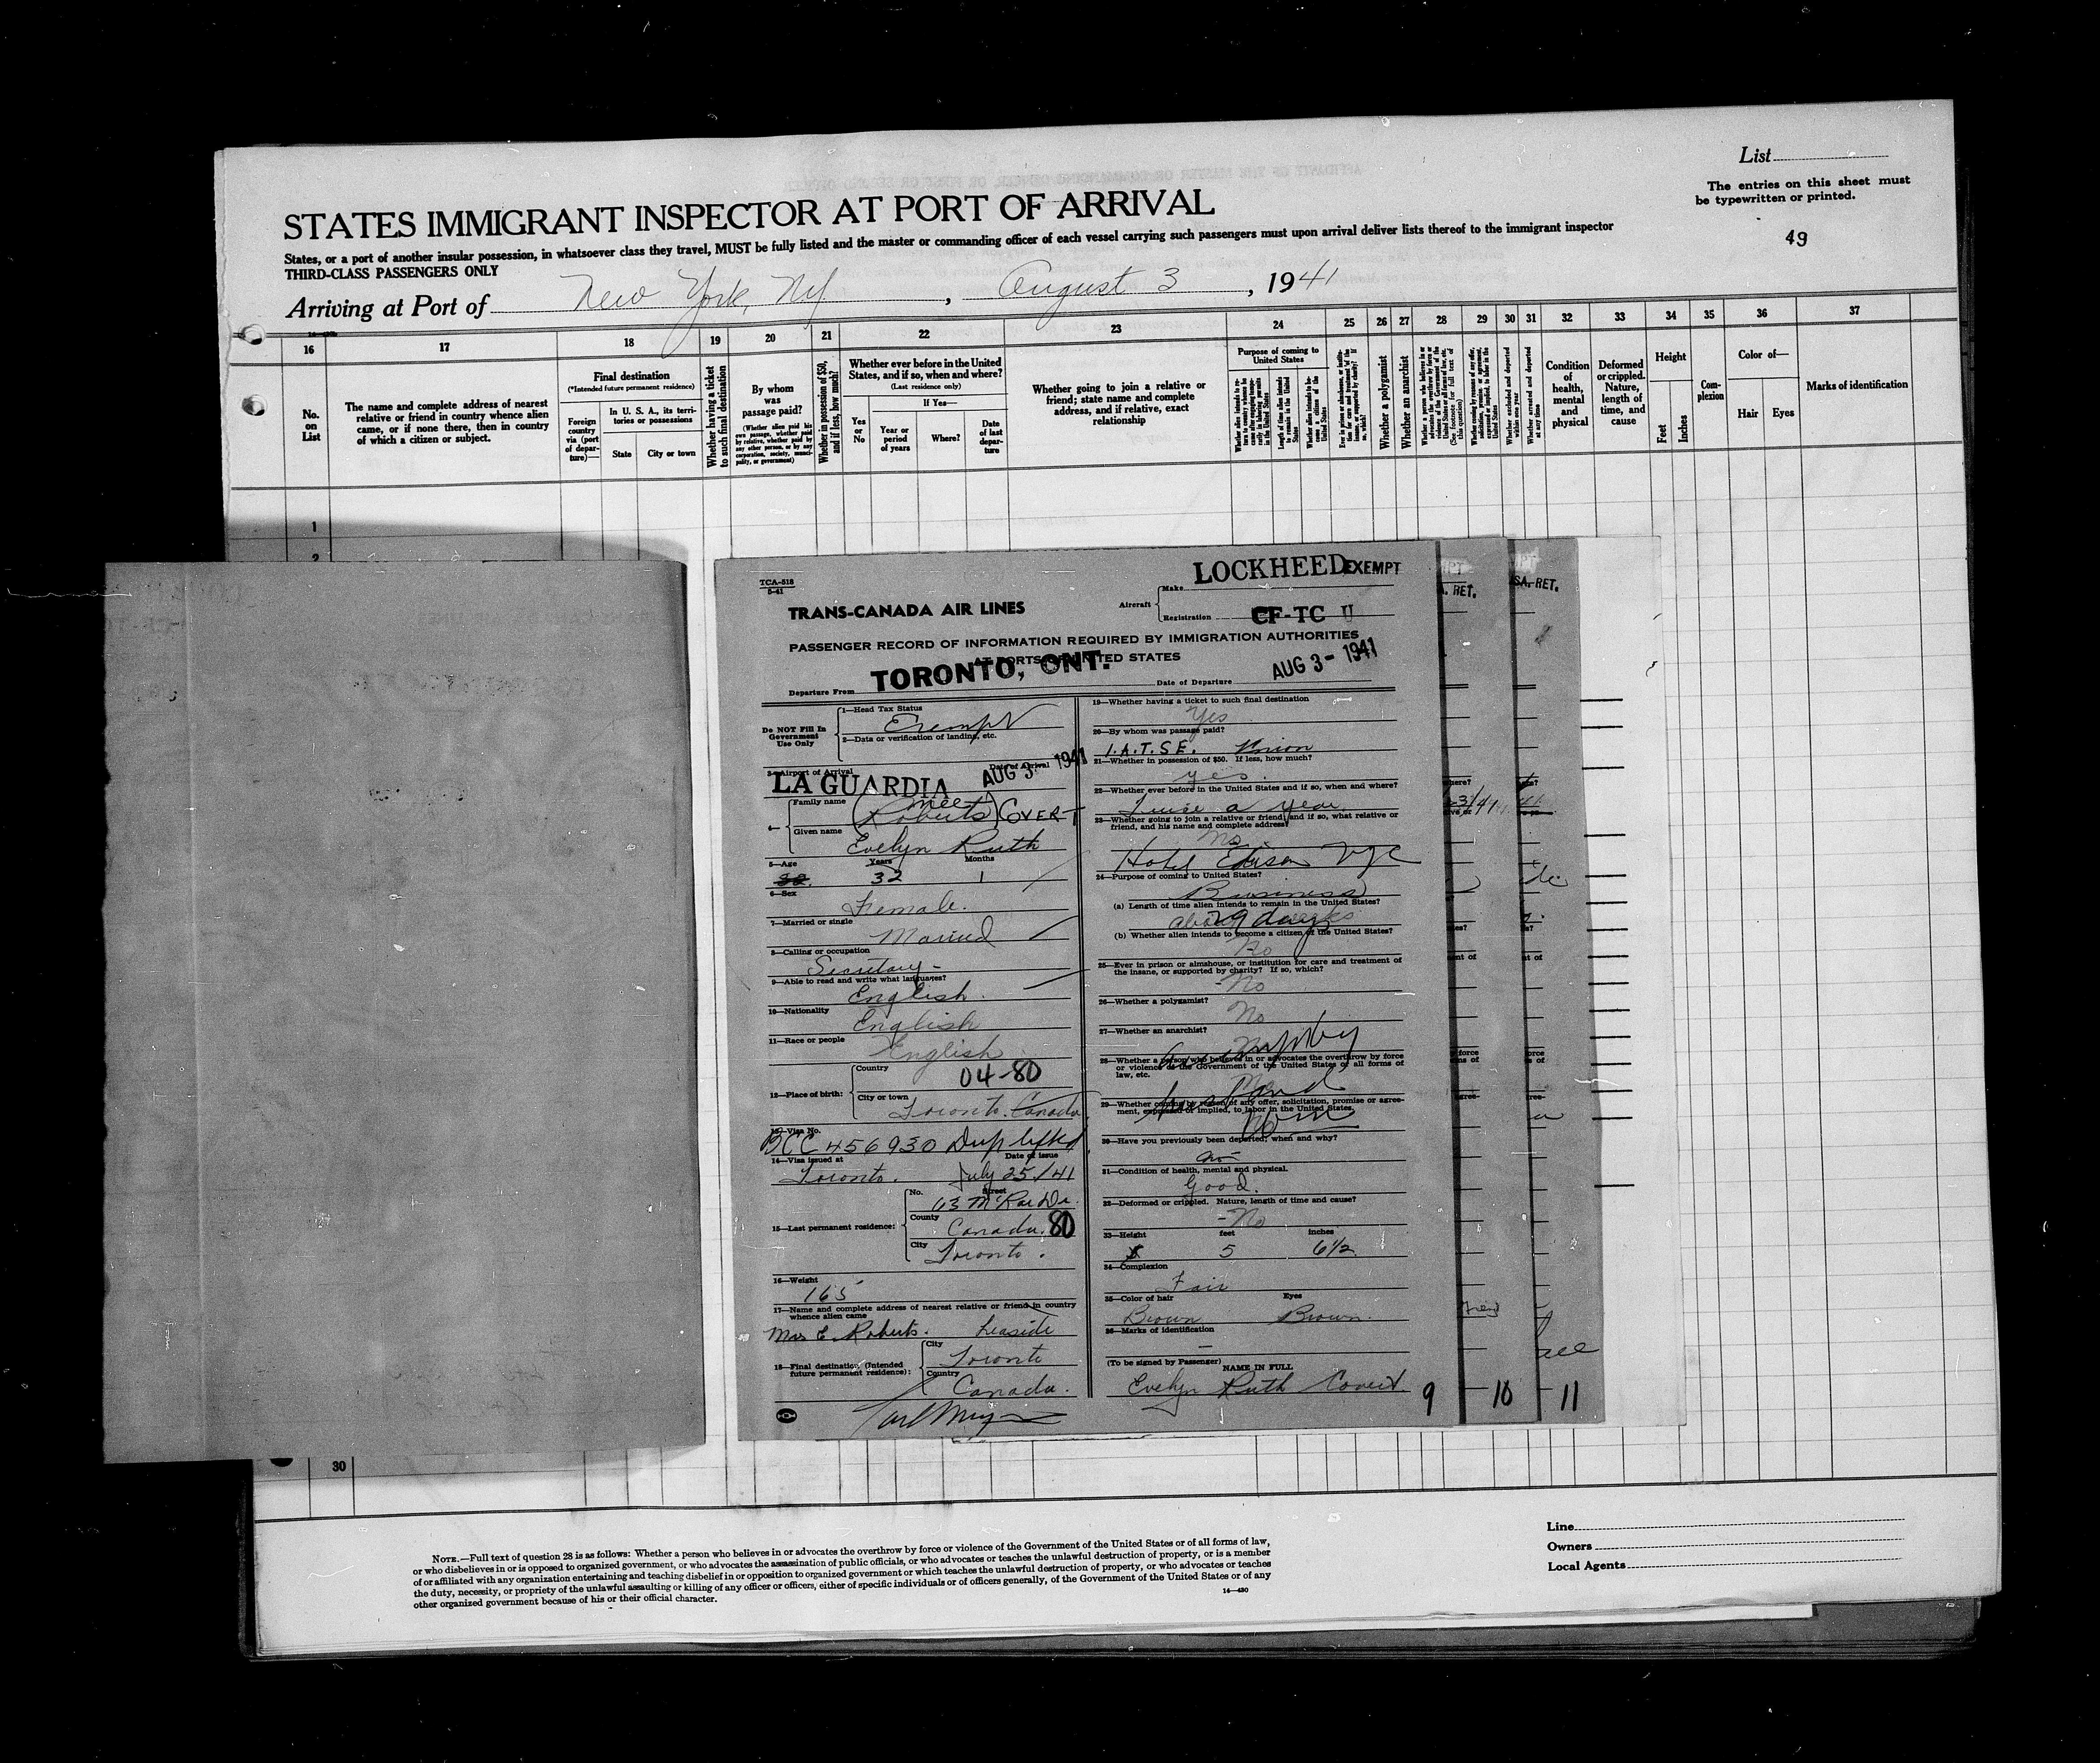 List
The entries on this sheet must
be typewritten or printed.
49
STATES IMMIGRANT INSPECTOR AT PORT OF ARRIVAL
States, or a port of another insular possession, in whatsoever class they travel, MUST be fully listed and the master or commanding officer of each vessel carrying such passengers must upon arrival deliver lists thereof to the immigrant inspector
THIRD-CLASS PASSENGERS ONLY
Arriving at Port of New York, NY, August 3, 1941
16 17 18 19 20 21 22 23 24 25 26 27 28 29 30 31 32 33 34 35 36 37
No. on List
The name and complete address of nearest
relative or friend in country whence alien
came, or if none there, then in country
of which a citizen or subject.
Final destination
(*Intended future permanent residence)
Foreign country via (port of departure)—
In U. S. A., its territories or possessions
State
City or town
Whether having a ticket to such final destination
By whom was passage paid?
(Whether alien paid his own passage, whether paid by relative, whether paid by any other person, or by any corporation, society, municipality, or government)
Whether in possession of $50, and if less, how much?
Whether ever before in the United
States, and if so, when and where?
(Last residence only)
Yes or No
If Yes—
Year or period of years
Where?
Date of last departure
Whether going to join a relative or
friend; state name and complete
address, and if relative, exact
relationship
Purpose of coming to United States
Whether a polygamist
Whether an anarchist
Condition of health, mental and physical
Deformed or crippled. Nature, length of time, and cause
Height
Feet
Inches
Complexion
Color of—
Hair
Eyes
Marks of identification
1
2
30
TCA-518
5-41
TRANS-CANADA AIR LINES
Aircraft
Make LOCKHEED EXEMPT
Registration CF-TC U
PASSENGER RECORD OF INFORMATION REQUIRED BY IMMIGRATION AUTHORITIES
AT PORTS OF UNITED STATES
Departure From TORONTO, ONT.
Date of Departure AUG 3- 1941
Do NOT Fill In
Government
Use Only
1—Head Tax Status
Exempt
2—Data or verification of landing, etc.
3—Airport of Arrival LA GUARDIA
Date of Arrival AUG 3- 1941
4—
Family name (nee Roberts) COVERT
Given name Evelyn Ruth
5—Age Years 32 Months 1
6—Sex Female.
7—Married or single Married
8—Calling or occupation
Secretary -
9—Able to read and write what languages?
English.
10—Nationality English
11—Race or people English
12—Place of birth:
Country 04-80
City or town Toronto. Canada
13—Visa No.
BCC 456930 Dup lifted
14—Visa issued at Toronto.
Date of issue July 25/41
15—Last permanent residence:
No. Street 63 McRae Dr.
County Canada. 80
City Toronto.
16—Weight 165
17—Name and complete address of nearest relative or friend in country
whence alien came
Mrs E. Roberts. Leaside
18—Final destination (Intended
future permanent residence):
City Toronto
Country Canada.
19—Whether having a ticket to such final destination
Yes
20—By whom was passage paid?
I.A.T.S.E. Union
21—Whether in possession of $50. If less, how much?
yes.
22—Whether ever before in the United States and if so, when and where?
Twice a year.
23—Whether going to join a relative or friend and if so, what relative or
friend, and his name and complete address?
No.
Hotel Edison NYC
24—Purpose of coming to United States?
Business
(a) Length of time alien intends to remain in the United States?
29 days
(b) Whether alien intends to become a citizen of the United States?
No
25—Ever in prison or almshouse, or institution for care and treatment of
the insane, or supported by charity? If so, which?
-No
26—Whether a polygamist?
No
27—Whether an anarchist?
28—Whether a person who believes in or advocates the overthrow by force
or violence of the Government of the United States or all forms of
law, etc.
No
29—Whether coming by reason of any offer, solicitation, promise or agree-
ment, expressed or implied, to labor in the United States.
No
30—Have you previously been deported, when and why?
no
31—Condition of health, mental and physical.
Good.
32—Deformed or crippled. Nature, length of time and cause?
-No
33—Height feet 5 inches 6 1/2
34—Complexion
Fair
35—Color of hair Brown Eyes Brown.
36—Marks of identification
—
(To be signed by Passenger) NAME IN FULL
Evelyn Ruth Covert
9 10 11
Line
Owners
Local Agents
NOTE.—Full text of question 28 is as follows: Whether a person who believes in or advocates the overthrow by force or violence of the Government of the United States or of all forms of law,
or who disbelieves in or is opposed to organized government, or who advocates the assassination of public officials, or who advocates or teaches the unlawful destruction of property, or is a member
of or affiliated with any organization entertaining and teaching disbelief in or opposition to organized government or which teaches the unlawful destruction of property, or who advocates or teaches
the duty, necessity, or propriety of the unlawful assaulting or killing of any officer or officers, either of specific individuals or of officers generally, of the Government of the United States or of any
other organized government because of his or their official character.
14—480